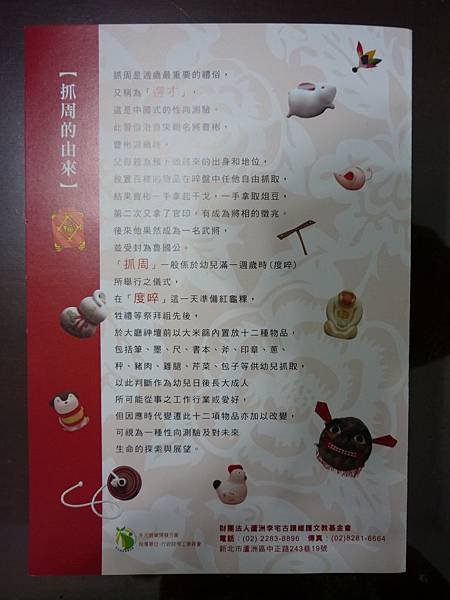 【抓周的由來】
抓周是週歲最重要的禮俗，
又稱為「選才」，
這是中國式的性向測驗。
此習俗沿自宋朝名將曹彬，
曹彬週歲時，
父母親為預卜他將來的出身和地位，
放置百種的物品在晬盤中任他自由抓取，
結果曹彬一手拿起干戈，一手拿取俎豆，
第二次又拿了官印，有成為將相的徵兆。
後來他果然成為一名武將，
並受封為魯國公。
「抓周」一般係於幼兒滿一週歲時(度晬)
所舉行之儀式，
在「度晬」這一天準備紅龜粿，
牲禮等祭拜祖先後，
於大廳神壇前以大米篩內置放十二種物品，
包括筆、墨、尺、書本、斧、印章、蔥、
秤、豬肉、雞腿、芹菜、包子等供幼兒抓取，
以此判斷作為幼兒日後長大成人
所可能從事之工作行業或愛好，
但因應時代變遷此十二項物品亦加以改變，
可視為一種性向測驗及對未來
生命的探索與展望。
多元就業開發方案
指導單位-行政院勞工委員會
財團法人蘆洲李宅古蹟維護文教基金會
電話：(02) 2283-8896 傳真：(02)8281-6664
新北市蘆洲區中正路243巷19號